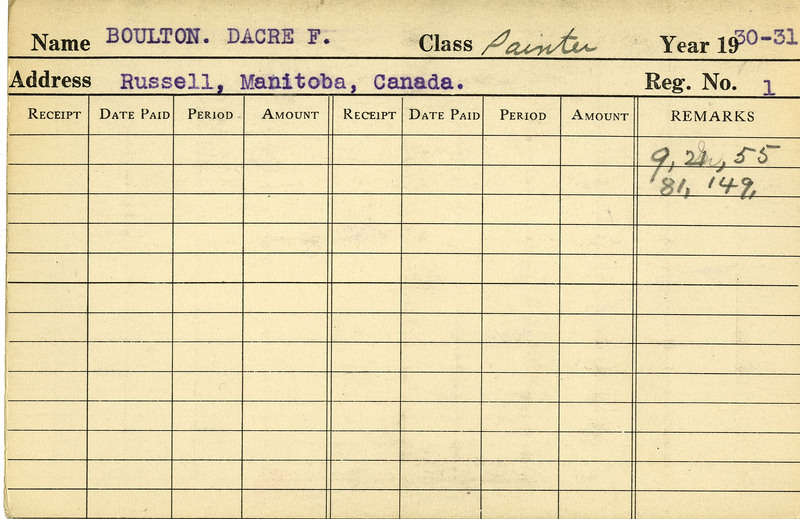 Name BOULTON. DACRE F. Class Painter Year 1930-31
Address Russell, Manitoba, Canada. Reg. No. 1
RECEIPT DATE PAID PERIOD AMOUNT RECEIPT DATE PAID PERIOD AMOUNT REMARKS
9, 55
81, 149,